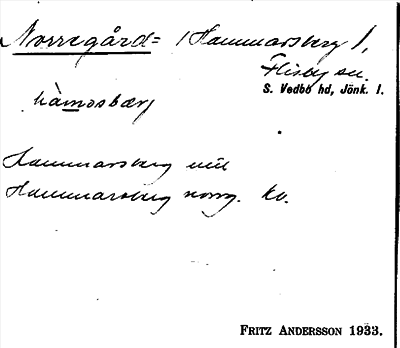 Norregård= (Hammarsberg),
Flisby sn.
S. Vedbo hd, Jönk. l.
hàmosbærj
Hammarsberg
Hammarsberg norrg. kv.
FRITZ ANDERSSON 1933.